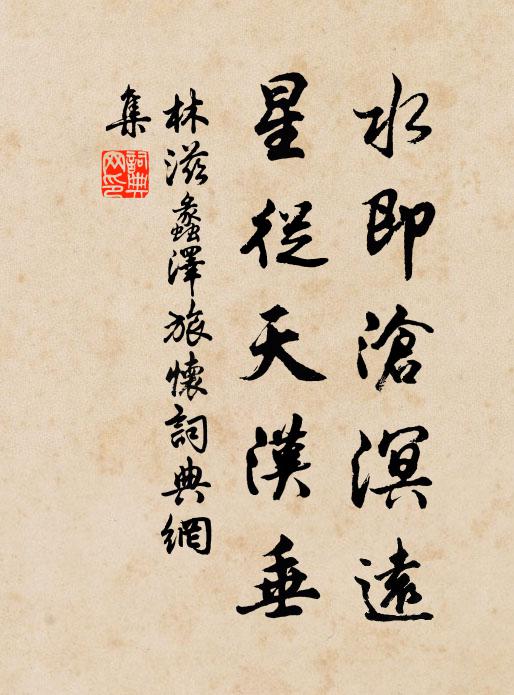 水即滄溟遠
星從天漢垂
林滋蠡澤旅懷詞典網
集
詞典
网印